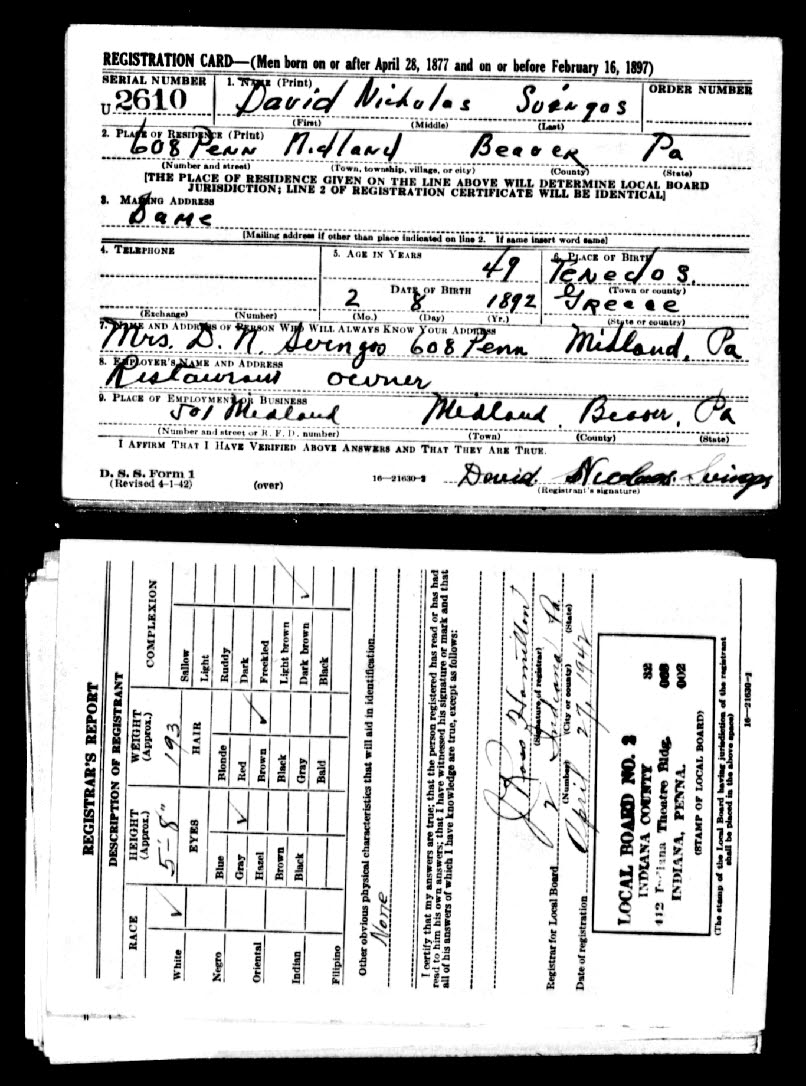 REGISTRATION CARD—(Men born on or after April 28, 1877 and on or before February 16, 1897)
SERIAL NUMBER 1. NAME (Print) ORDER NUMBER
U 2610 David Nicholas Svingos
(First) (Middle) (Last)
2. PLACE OF RESIDENCE (Print)
608 Penn Midland Beaver Pa
(Number and street) (Town, township, village, or city) (County) (State)
[THE PLACE OF RESIDENCE GIVEN ON THE LINE ABOVE WILL DETERMINE LOCAL BOARD
JURISDICTION; LINE 2 OF REGISTRATION CERTIFICATE WILL BE IDENTICAL]
3. MAILING ADDRESS
Same
[Mailing address if other than place indicated on line 2. If same insert word same]
4. TELEPHONE 5. AGE IN YEARS 6. PLACE OF BIRTH
49 Tenedos.
DATE OF BIRTH (Town or county)
2 8 1892 Greece
(Exchange) (Number) (Mo.) (Day) (Yr.) (State or country)
7. NAME AND ADDRESS OF PERSON WHO WILL ALWAYS KNOW YOUR ADDRESS
Mrs. D. N. Svingos 608 Penn Midland, Pa
8. EMPLOYER'S NAME AND ADDRESS
Restaurant owner
9. PLACE OF EMPLOYMENT OR BUSINESS
501 Midland Midland, Beaver, Pa
(Number and street or R. F. D. number) (Town) (County) (State)
I AFFIRM THAT I HAVE VERIFIED ABOVE ANSWERS AND THAT THEY ARE TRUE.
D. S. S. Form 1
(Revised 4-1-42) (over) 16—21630-2 David Nicolas Svingos
(Registrant's signature)
REGISTRAR'S REPORT
DESCRIPTION OF REGISTRANT
RACE HEIGHT (Approx.) WEIGHT (Approx.) COMPLEXION
White ✓ 5-8" 193 Sallow
EYES HAIR Light
Negro Blue Blonde Ruddy
Gray ✓ Red Dark
Oriental Hazel Brown ✓ Freckled
Brown Black Light brown
Indian Black Gray Dark brown ✓
Filipino Bald Black
Other obvious physical characteristics that will aid in identification
None
I certify that my answers are true; that the person registered has read or has had
read to him his own answers; that I have witnessed his signature or mark and that
all of his answers of which I have knowledge are true, except as follows:
J Ross Hamilton
(Signature of registrar)
Registrar for Local Board 2 Indiana Pa
(Number) (City or county) (State)
Date of registration April 27, 1942
LOCAL BOARD NO. 2 32
INDIANA COUNTY 063
412 Indiana Theatre Bldg. 002
INDIANA, PENNA.
(STAMP OF LOCAL BOARD)
(The stamp of the Local Board having jurisdiction of the registrant
shall be placed in the above space)
16—21630-2